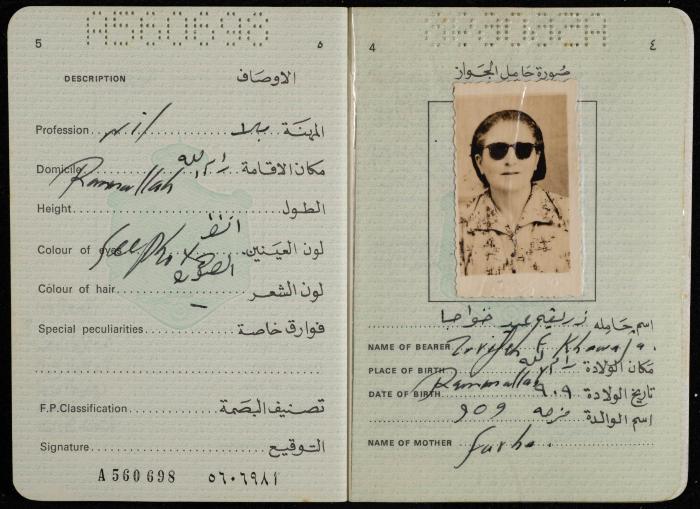 5 ٥
DESCRIPTION الاوصاف
Profession nil بلا المهنة
Domicile Ramallah رام الله مكان الاقامة
Height الطول
Colour of eyes See photo انظر الصورة لون العينين
Colour of hair لون الشعر
Special peculiarities فوارق خاصة
F.P.Classification تصنيف البصمة
Signature التوقيع
A 560698 ٥٦٠٦٩٨ أ
4 ٤
صورة حامل الجواز
اسم حامله عيد خواجا
NAME OF BEARER E. Khawaja.
PLACE OF BIRTH Ramallah رام الله مكان الولادة
DATE OF BIRTH 909 ٩٠٩ تاريخ الولادة
اسم الوالدة فرحه
NAME OF MOTHER Farha